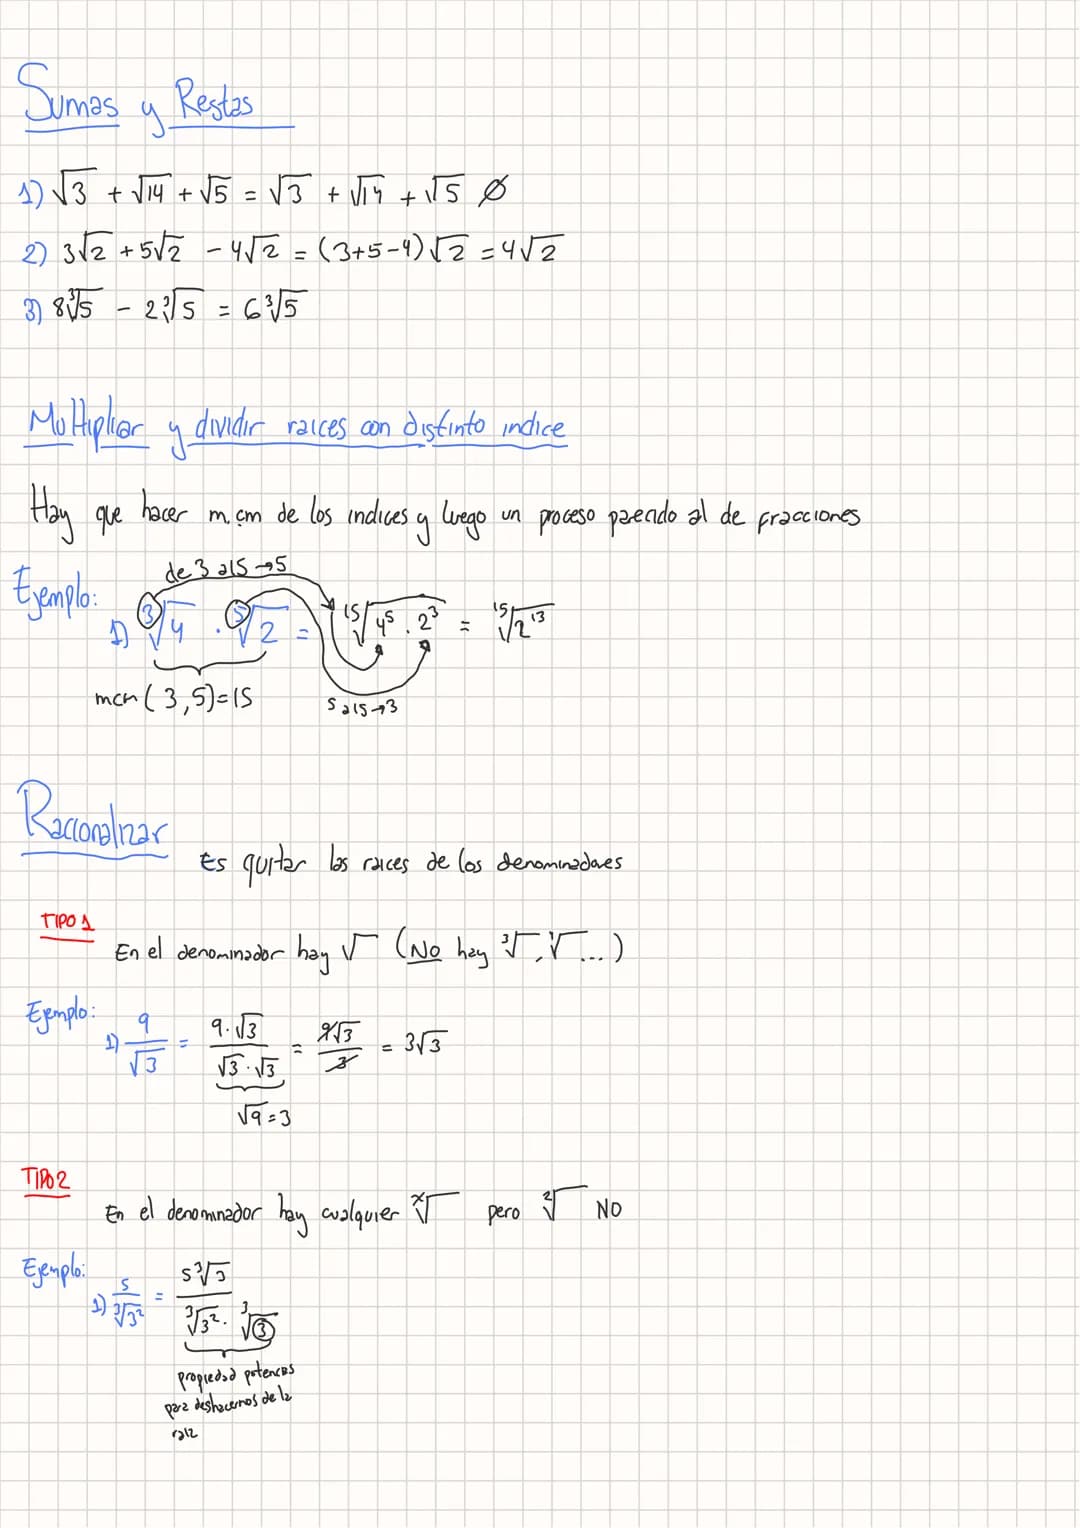 Sumas y Restas
1) √3 + √14 + √5 = √3 + √14 + √5 ∅
2) 3√2 + 5√2 - 4√2 = (3+5-4)√2 = 4√2
3) 8∛5 - 2∛5 = 6∛5
Multipliar y dividir raices con distinto indice
Hay que hacer m.cm de los indices y luego un proceso parecido al de fracciones
de 3 a 15 → 5
Ejemplo:
1) ∛4 · ⁵√2 = ¹⁵√(4⁵ · 2³) = ¹⁵√(2¹³)
mcm (3,5)=15
5 a 15 → 3
Racionalizar
Es quitar las raices de los denominadores
TIPO 1
En el denominador hay √ (No hay ∛, √ ...)
Ejemplo:
1) 9/√3 = (9·√3)/(√3·√3) = 9√3/3 = 3√3
√9 = 3
TIPO 2
En el denominador hay cualquier ˣ√ pero ²√ NO
Ejemplo:
1) 5/∛3² = 5∛3/(∛3² · ∛3)
propiedad potencias
para deshacernos de la
raiz